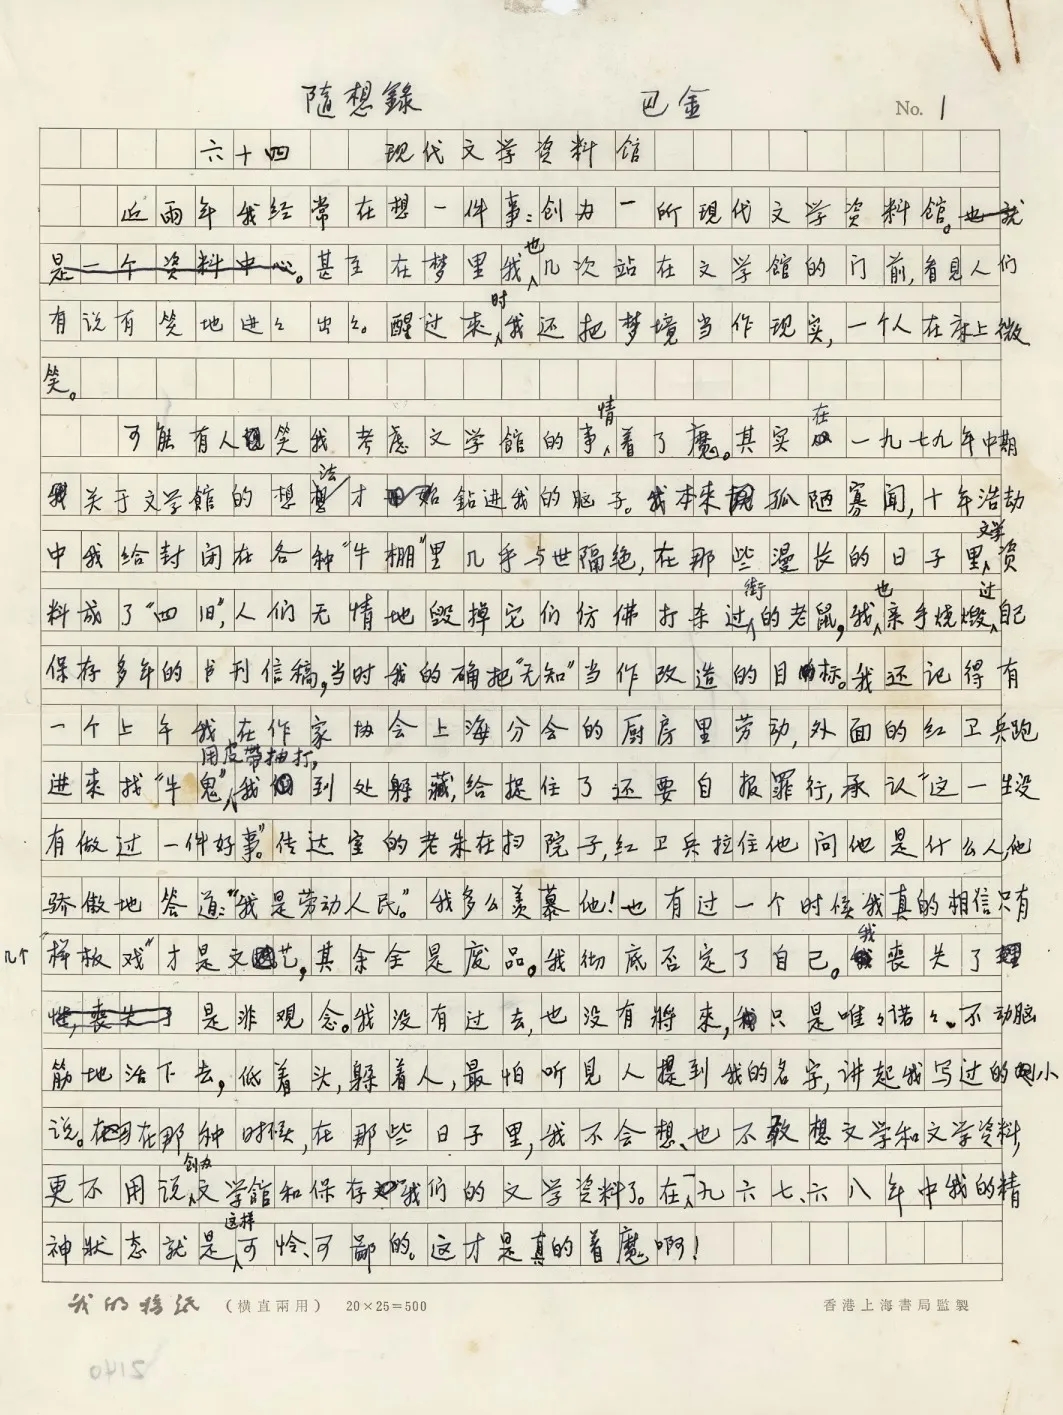 隨想錄 巴金 No. 1
六十四 现代文学資料館
近兩年我经常在想一件事:创办一所现代文学資料館。也就
是一个資料中心。甚至在梦里我也几次站在文学館的门前,看見人们
有说有笑地进々出々。醒过来时,我还把梦境当作现实,一个人在床上微
笑。
可能有人笑我考虑文学館的事情着了魔。其实在一九七九年中期
我关于文学館的想法才開始鉆进我的脑子。我本来孤陋寡闻,十年浩劫
中我给封闭在各种“牛棚”里几乎与世隔绝,在那些漫长的日子里,文学資
料成了“四旧”,人们无情地毁掉它们仿佛打杀过街的老鼠,我也亲手烧燬过自己
保存多年的书刊信稿,当时我的确把“无知”当作改造的目标。我还记得有
一个上午我在作家协会上海分会的厨房里劳动,外面的红卫兵跑
进来找“牛鬼”用皮带抽打,我到处躲藏,给捉住了还要自报罪行,承认“这一生没
有做过一件好事”。传达室的老朱在扫院子,红卫兵拉住他问他是什么人,他
骄傲地答道:“我是劳动人民。”我多么羡慕他!也有过一个时候我真的相信只有
几个“样板戏”才是文艺,其余全是废品。我彻底否定了自己。我喪失了理
性,喪失了是非观念。我没有过去,也没有將来,只是唯々诺々、不动脑
筋地活下去,低着头,躲着人,最怕听見人提到我的名字,讲起我写过的小
说。在那种时候,在那些日子里,我不会想、也不敢想文学和文学資料,
更不用说创办文学館和保存我们的文学資料了。在一九六七、六八年中我的精
神狀态就是这样可怜、可鄙的。这才是真的着魔啊!
我的稿纸 (橫直兩用) 20×25=500 香港上海書局監製
2140